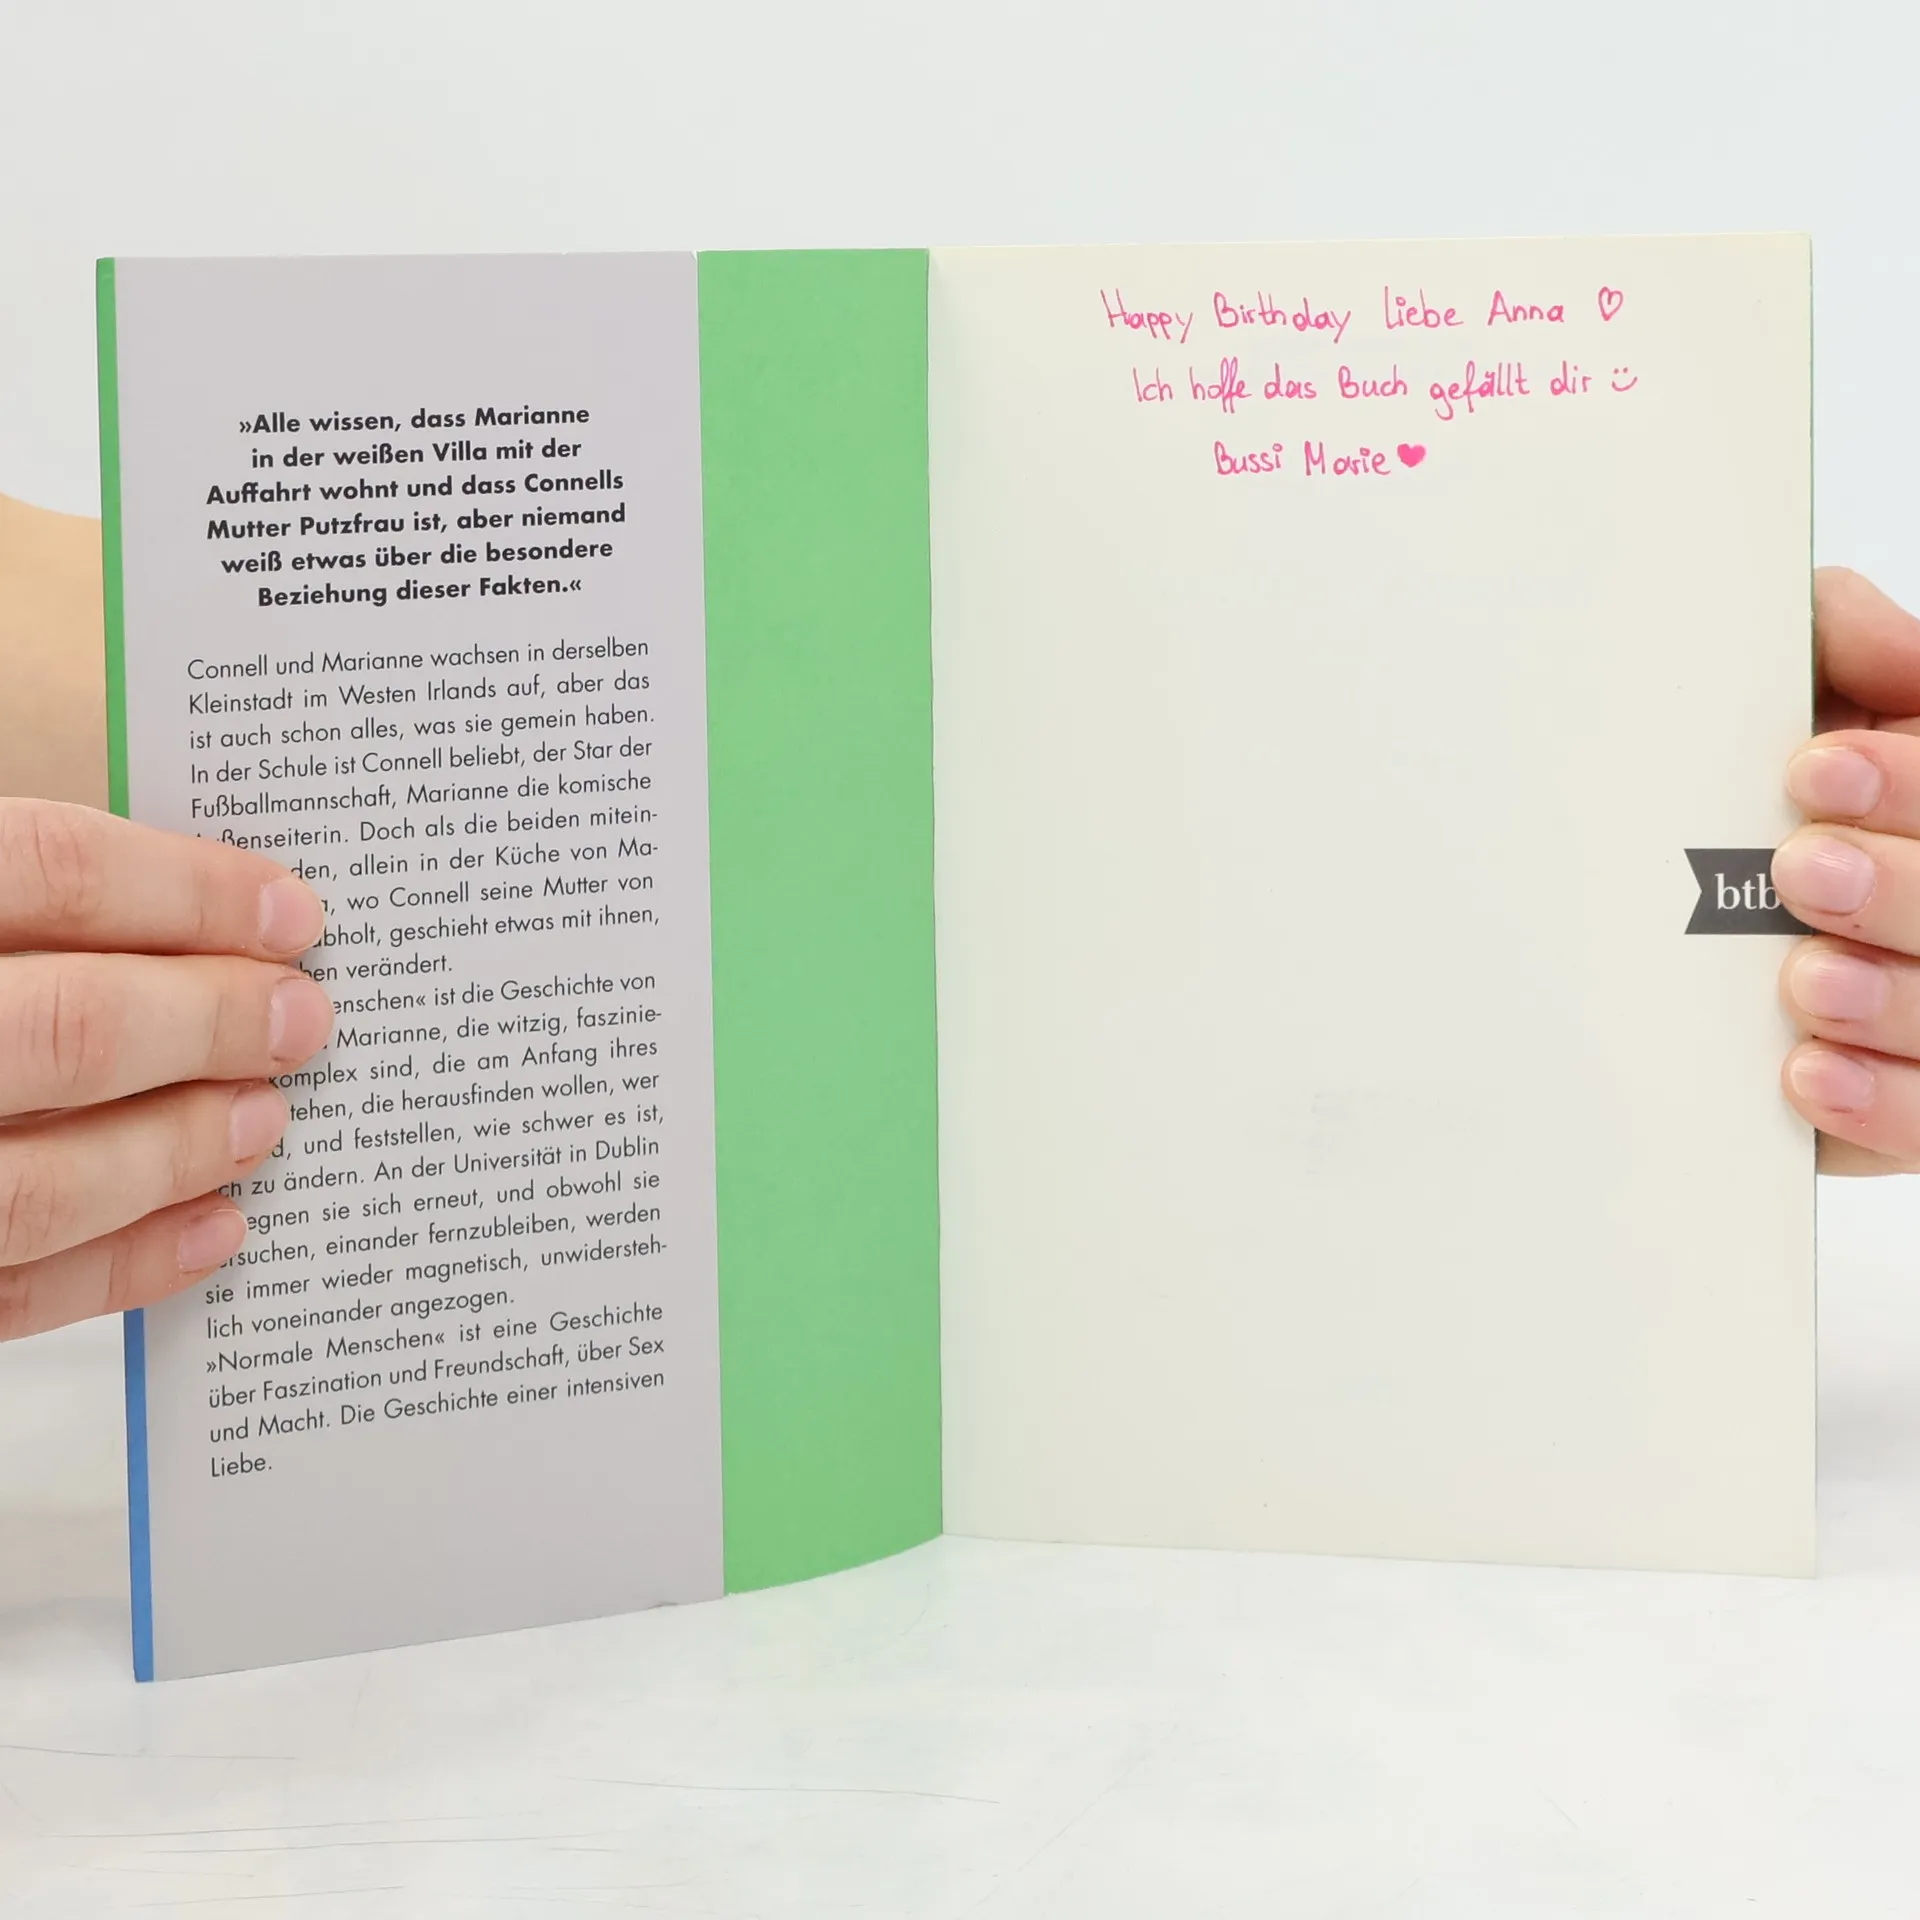 »Alle wissen, dass Marianne
in der weißen Villa mit der
Auffahrt wohnt und dass Connells
Mutter Putzfrau ist, aber niemand
weiß etwas über die besondere
Beziehung dieser Fakten.«
Connell und Marianne wachsen in derselben
Kleinstadt im Westen Irlands auf, aber das
ist auch schon alles, was sie gemein haben.
In der Schule ist Connell beliebt, der Star der
Fußballmannschaft, Marianne die komische
ßenseiterin. Doch als die beiden mitein-
den, allein in der Küche von Ma-
, wo Connell seine Mutter von
abholt, geschieht etwas mit ihnen,
ben verändert.
enschen« ist die Geschichte von
Marianne, die witzig, faszinie-
komplex sind, die am Anfang ihres
tehen, die herausfinden wollen, wer
d, und feststellen, wie schwer es ist,
ch zu ändern. An der Universität in Dublin
egnen sie sich erneut, und obwohl sie
rsuchen, einander fernzubleiben, werden
sie immer wieder magnetisch, unwidersteh-
lich voneinander angezogen.
»Normale Menschen« ist eine Geschichte
über Faszination und Freundschaft, über Sex
und Macht. Die Geschichte einer intensiven
Liebe.
Happy Birthday liebe Anna ♡
Ich hoffe das Buch gefällt dir ☺
Bussi Marie ♥
btb